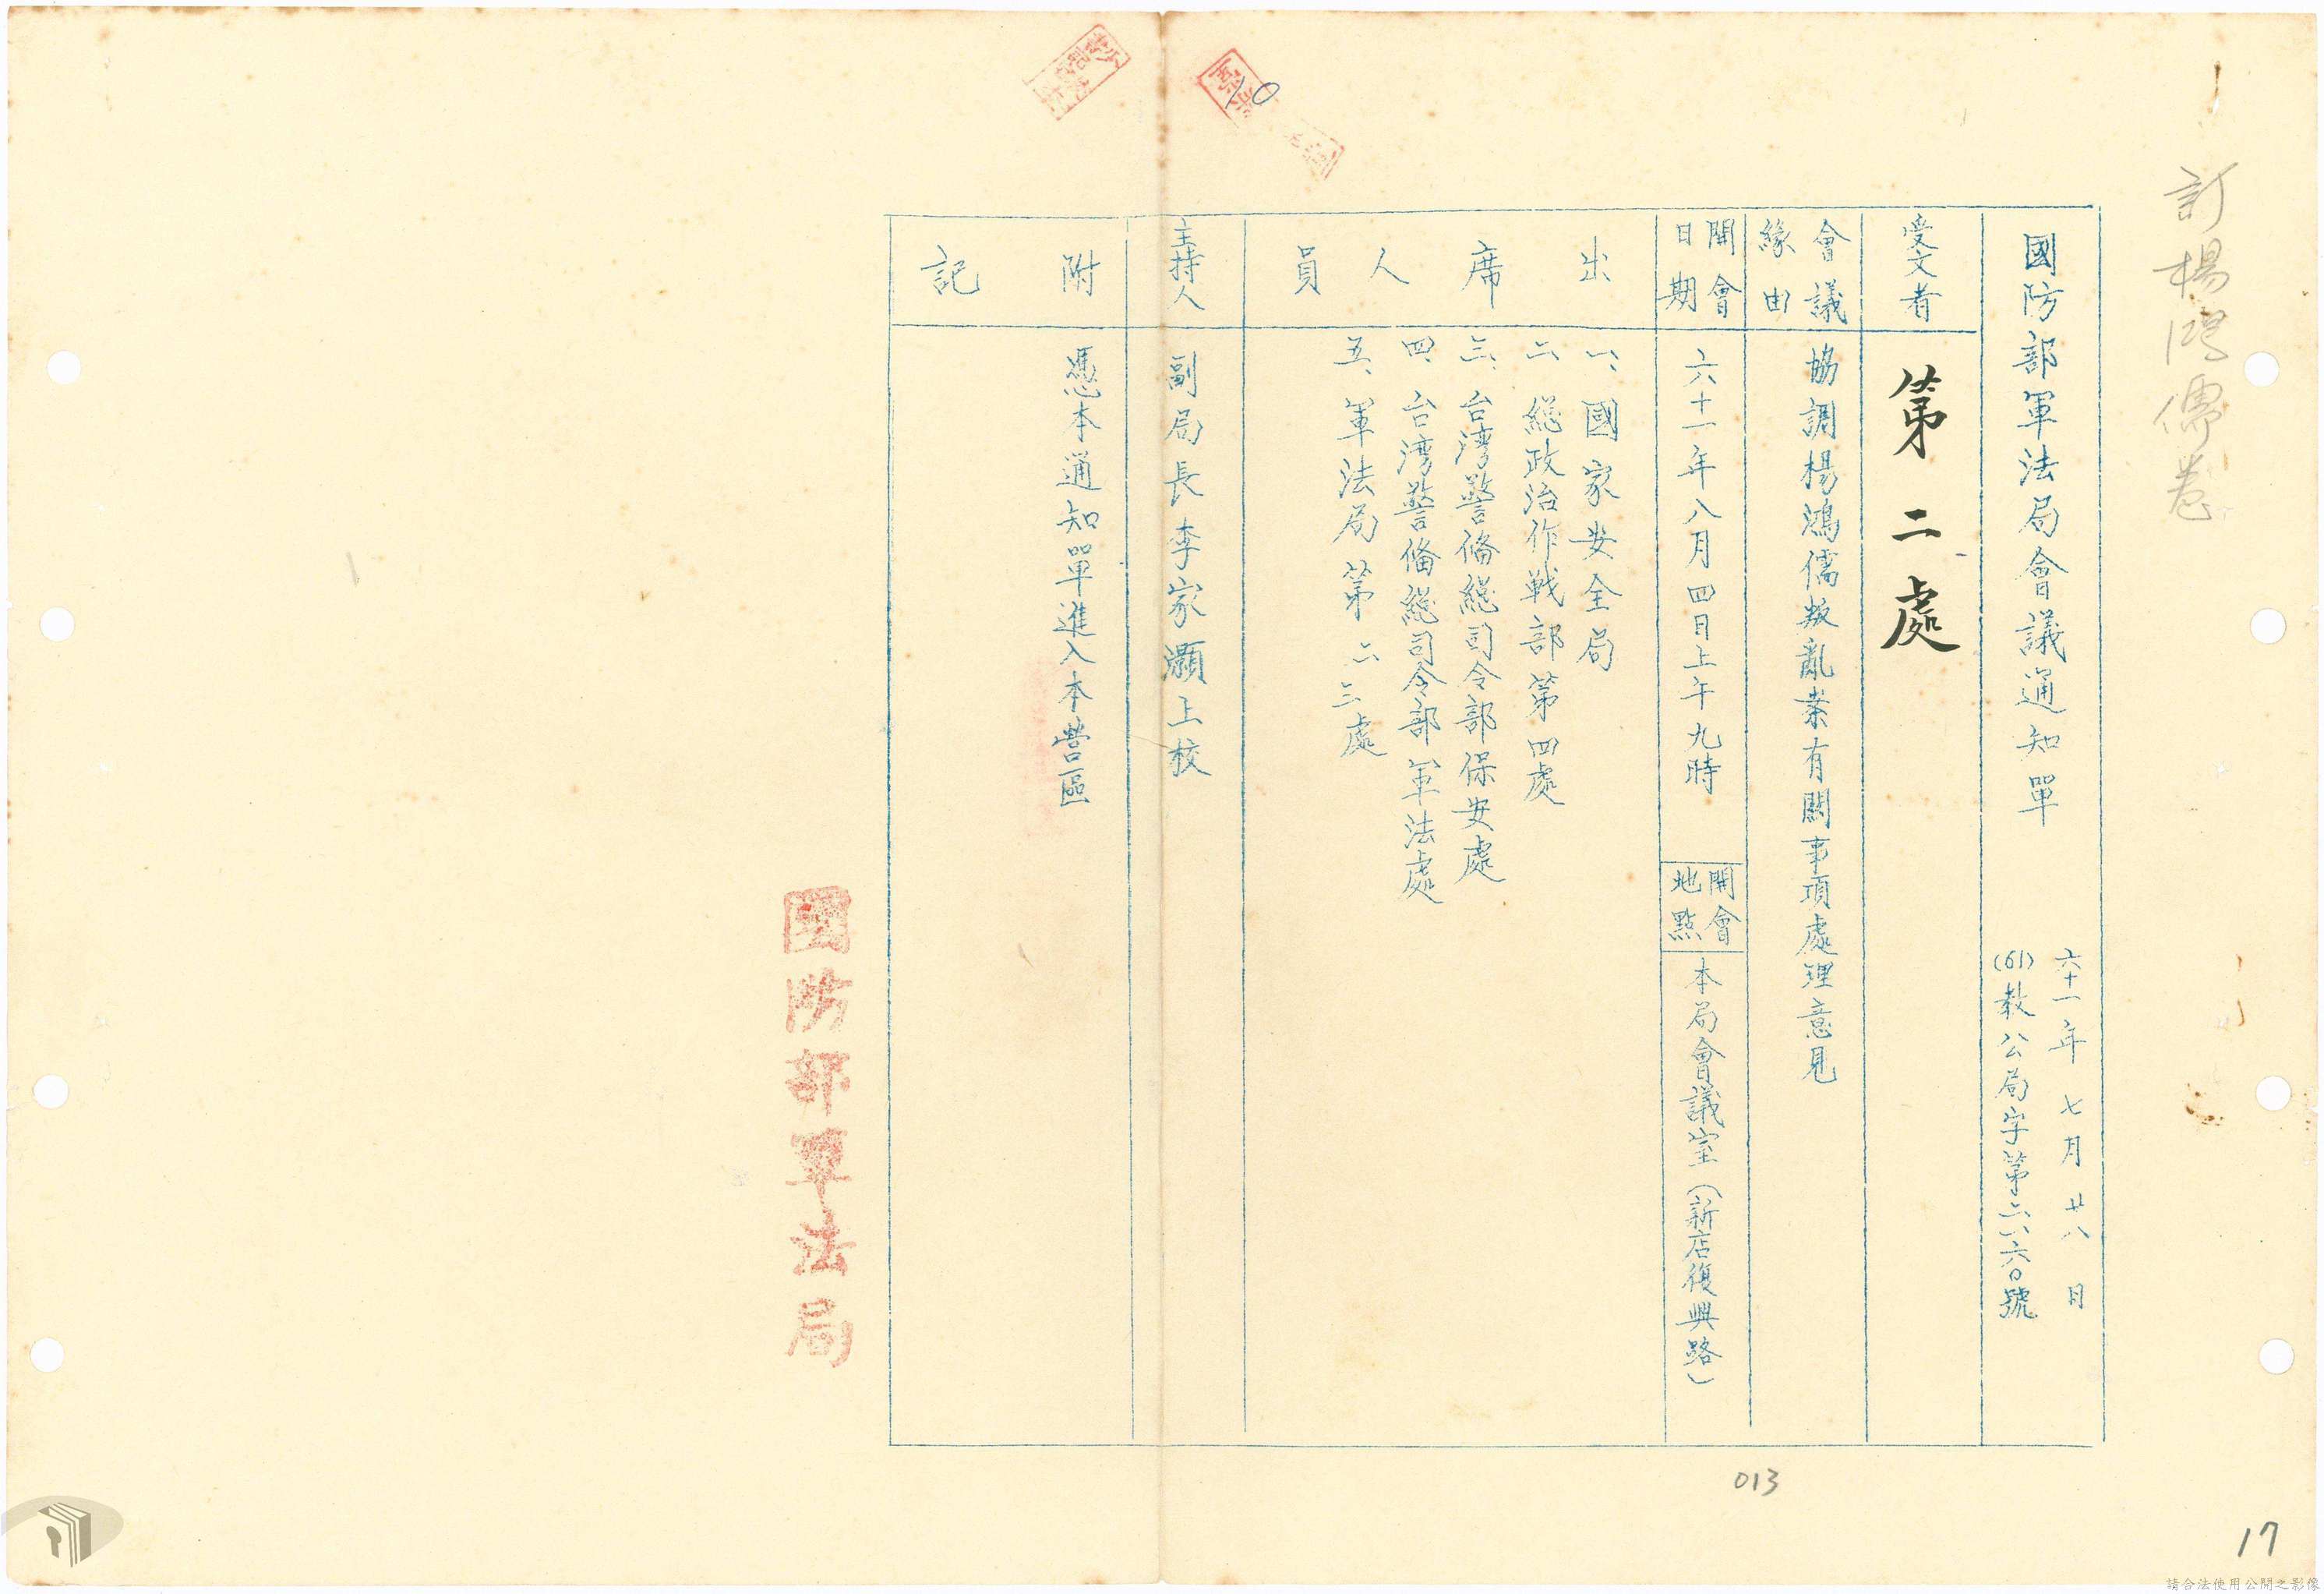 訂楊鴻儒卷
國防部軍法局會議通知單
六十一年七月廿八日
(61)教公局字第二八六〇號
受文者
第二處
會議緣由
協調楊鴻儒叛亂案有關事項處理意見
開會日期
六十一年八月四日上午九時
開會地點
本局會議室(新店復興路)
出席人員
一、國家安全局
二、總政治作戰部第四處
三、台湾警俻總司令部保安處
四、台湾警俻總司令部軍法處
五、軍法局第二三處
主持人
副局長李家灝上校
附記
憑本通知單進入本營區
國防部軍法局
10
013
17
請合法使用公開之影像